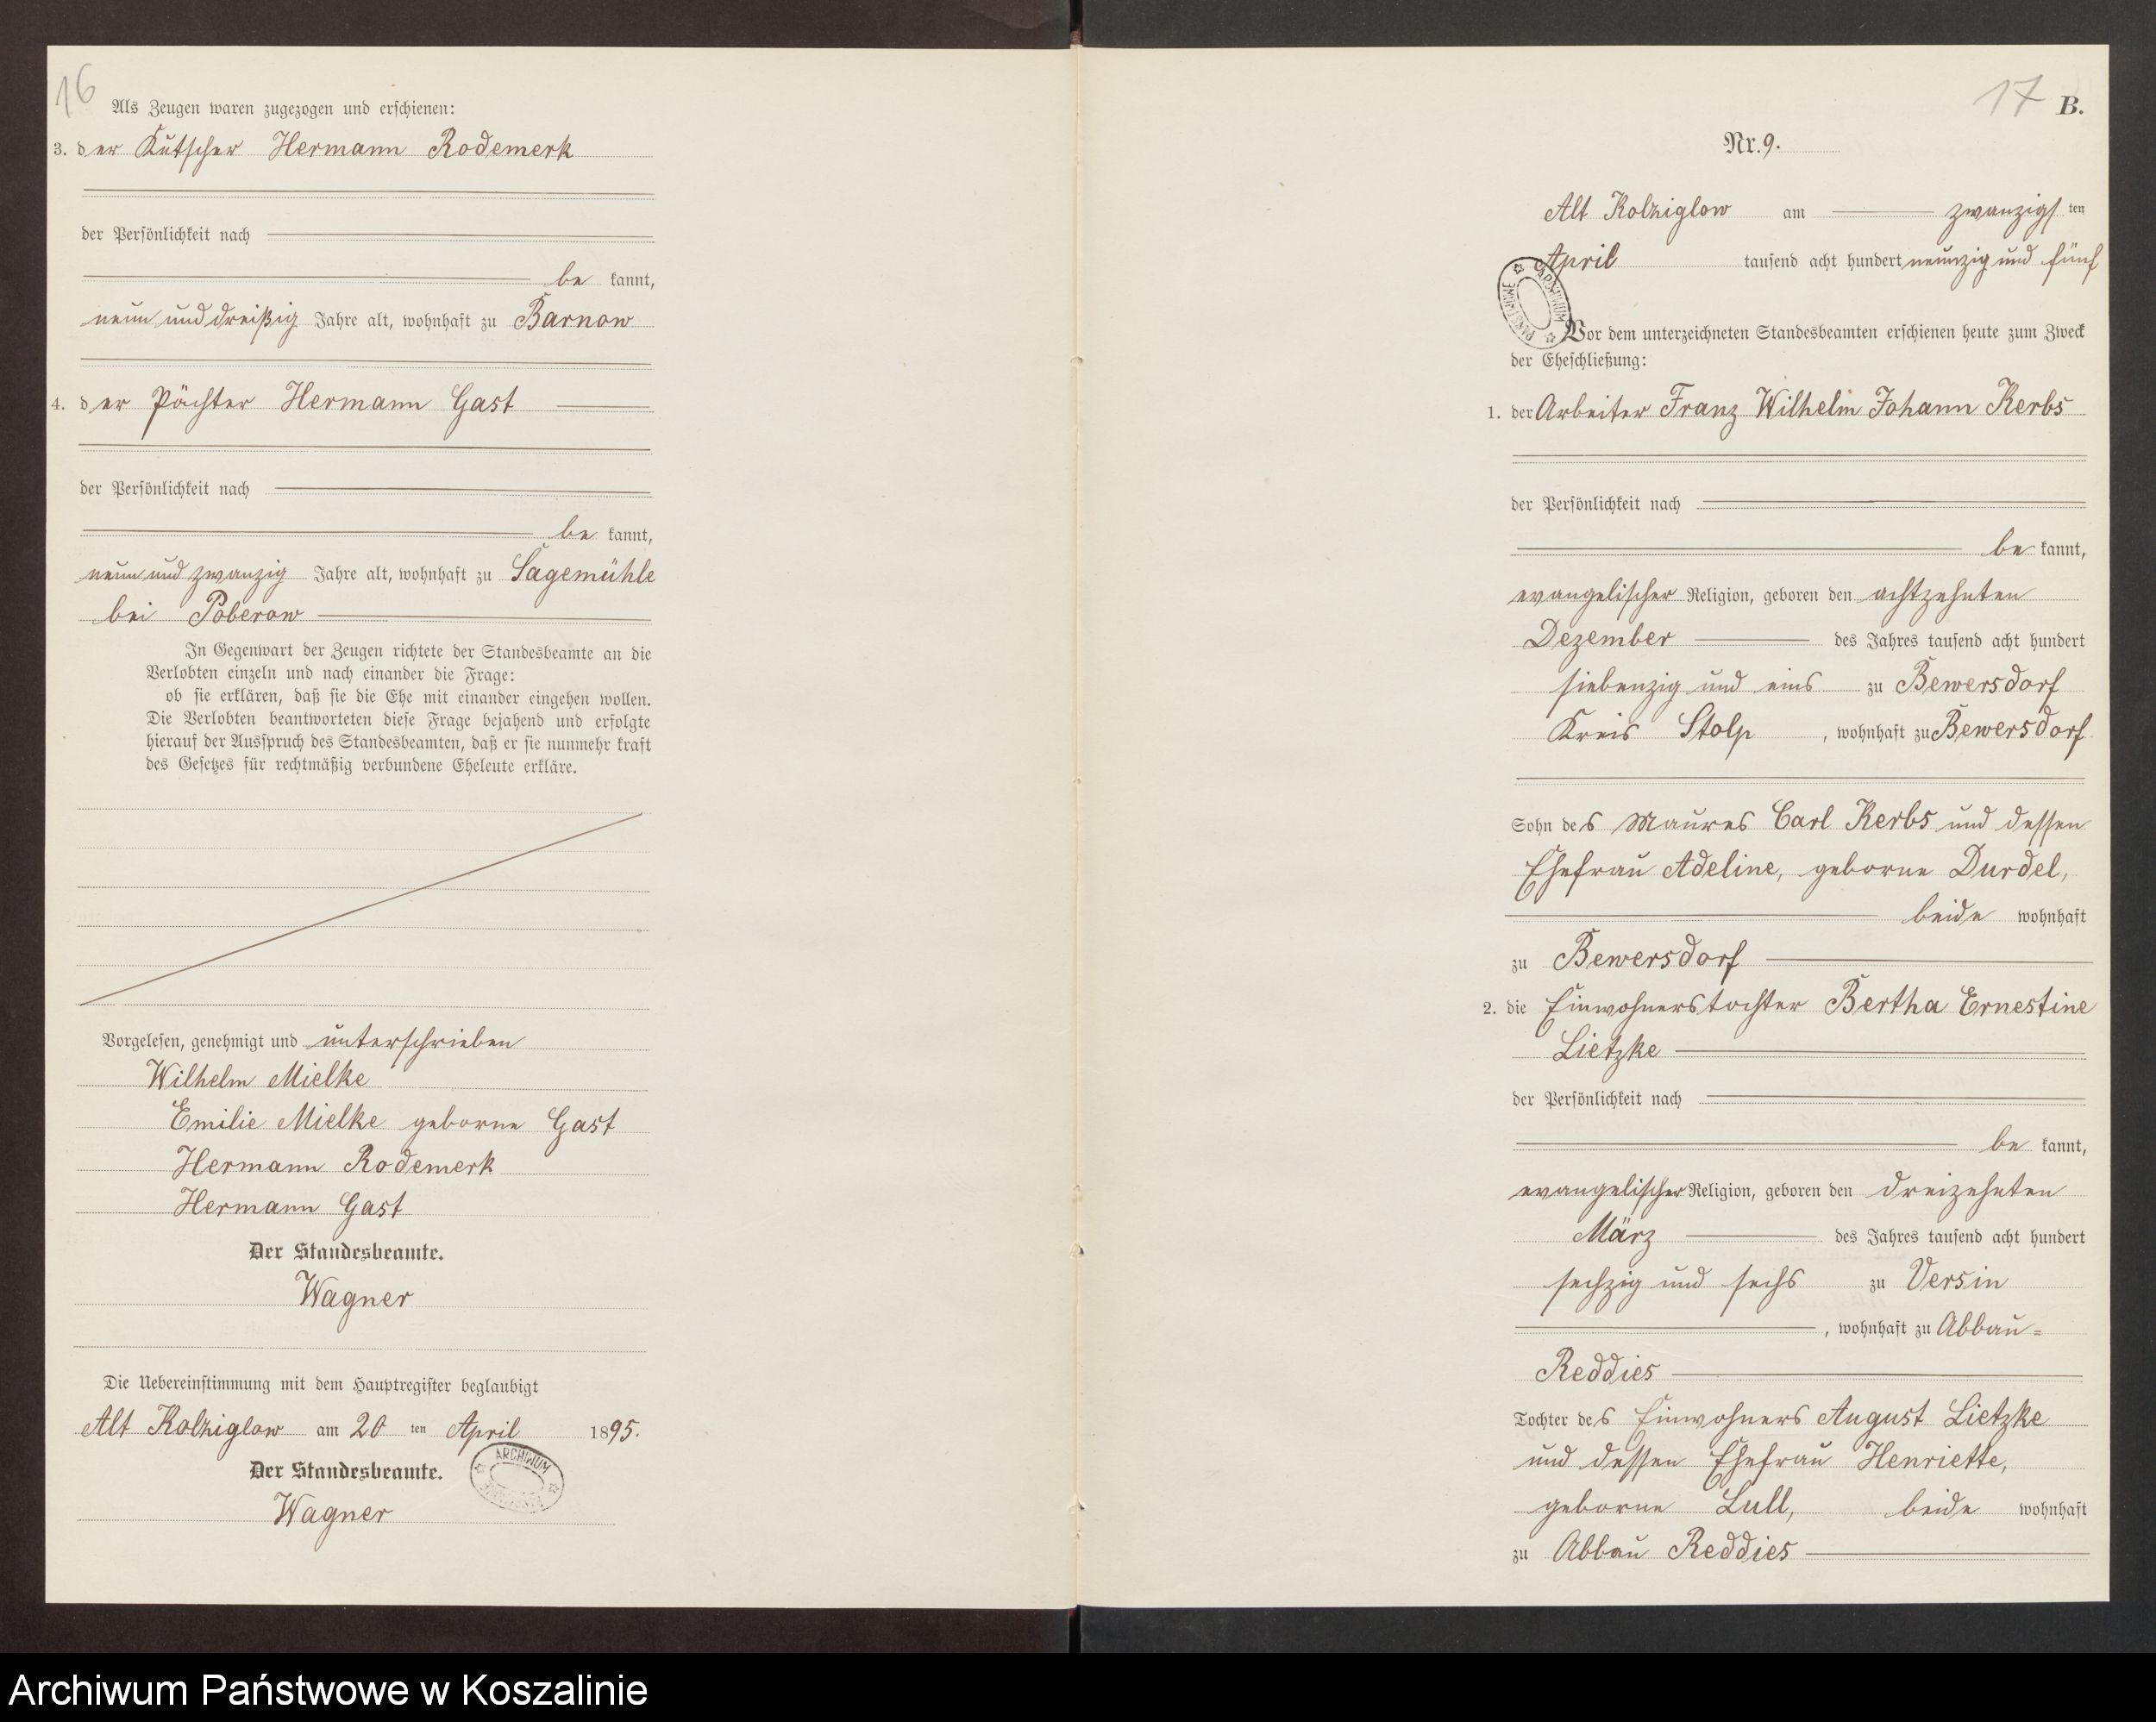 16
Als Zeugen waren zugezogen und erschienen:
3. der Kutscher Hermann Rodemerk
der Persönlichkeit nach
be kannt,
neun und dreißig Jahre alt, wohnhaft zu Barnow
4. der Pächter Hermann Gast
der Persönlichkeit nach
be kannt,
neun und zwanzig Jahre alt, wohnhaft zu Sägemühle
bei Poberow
In Gegenwart der Zeugen richtete der Standesbeamte an die
Verlobten einzeln und nach einander die Frage:
ob sie erklären, daß sie die Ehe mit einander eingehen wollen.
Die Verlobten beantworteten diese Frage bejahend und erfolgte
hierauf der Ausspruch des Standesbeamten, daß er sie nunmehr kraft
des Gesetzes für rechtmäßig verbundene Eheleute erkläre.
Vorgelesen, genehmigt und unterschrieben
Wilhelm Mielke
Emilie Mielke geborne Gast
Hermann Rodemerk
Hermann Gast
Der Standesbeamte.
Wagner
Die Uebereinstimmung mit dem Hauptregister beglaubigt
Alt Kolziglow am 20 ten April 1895.
Der Standesbeamte.
ARCHIWUM PAŃSTWOWE
Wagner
17 B.
Nr. 9.
Alt Kolziglow am zwanzigsten
April tausend acht hundert neunzig und fünf
ARCHIWUM PAŃSTWOWE
Vor dem unterzeichneten Standesbeamten erschienen heute zum Zweck
der Eheschließung:
1. der Arbeiter Franz Wilhelm Johann Kerbs
der Persönlichkeit nach
be kannt,
evangelischer Religion, geboren den achtzehnten
Dezember des Jahres tausend acht hundert
siebenzig und eins zu Bewersdorf
Kreis Stolp, wohnhaft zu Bewersdorf
Sohn des Maures Carl Kerbs und dessen
Ehefrau Adeline, geborne Durdel,
beide wohnhaft
zu Bewersdorf
2. die Einwohnerstochter Bertha Ernestine
Lietzke
der Persönlichkeit nach
be kannt,
evangelischer Religion, geboren den dreizehnten
März des Jahres tausend acht hundert
sechzig und sechs zu Versin
, wohnhaft zu Abbau=
Reddies
Tochter des Einwohners August Lietzke
und dessen Ehefrau Henriette,
geborne Lull, beide wohnhaft
zu Abbau Reddies
Archiwum Państwowe w Koszalinie